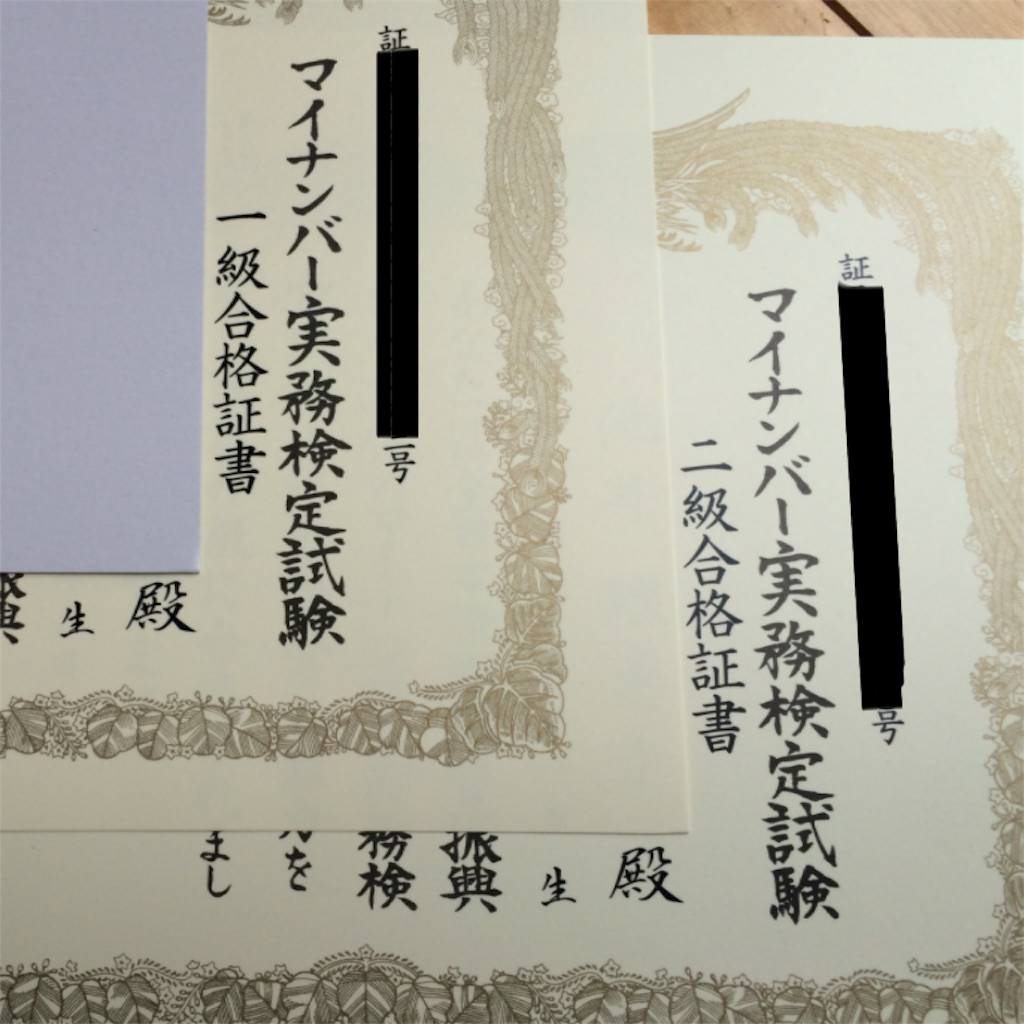 証
号
マイナンバー実務検定試験
一級合格証書
殿
生
振興
証
号
マイナンバー実務検定試験
二級合格証書
殿
生
振興
務検
を
まし